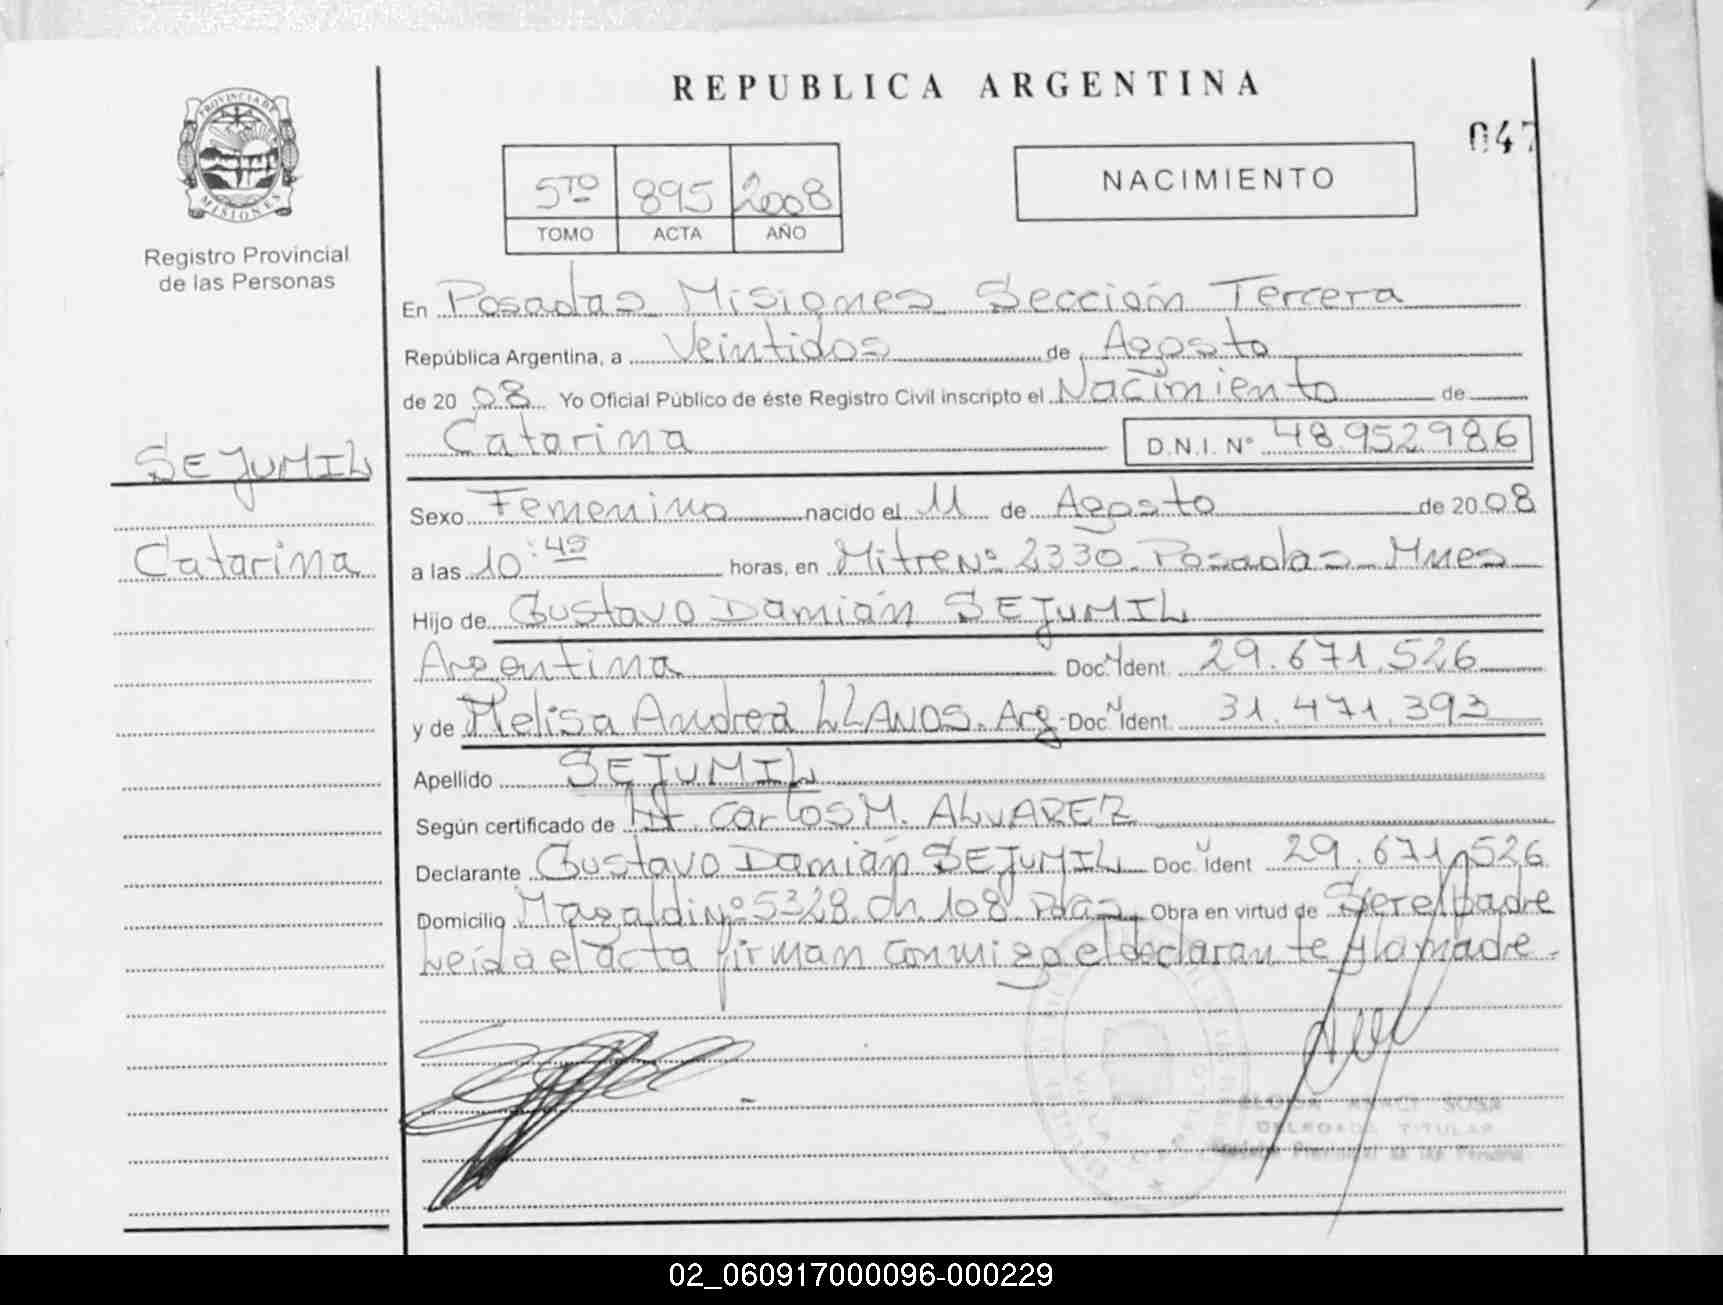 REPUBLICA ARGENTINA
047
PROVINCIA DE
MISIONES
Registro Provincial
de las Personas
5TO 895 2008
TOMO ACTA AÑO
NACIMIENTO
En Posadas Misiones Sección Tercera
República Argentina, a Veintidos de Agosto
de 20 08 Yo Oficial Público de éste Registro Civil inscripto el Nacimiento de
Catarina D.N.I. N° 48.952.986
SEJUMIL
Catarina
Sexo Femenino nacido el 11 de Agosto de 20 08
a las 10:49 horas, en Mitre Nº 2330. Posadas Mnes
Hijo de Gustavo Damián SEJUMIL
Argentina Doc. Ident. 29.671.526
y de Melisa Andrea LLANOS. Arg. Doc. Ident. 31.471.393
Apellido SEJUMIL
Según certificado de Carlos M. ALVAREZ
Declarante Gustavo Damián SEJUMIL Doc. Ident 29.671.526
Domicilio Magaldi Nº 5328 ch. 108 Pdas. Obra en virtud de Ser el padre
Leída el acta firman conmigo el declarante y la madre.
SOSA
TITULAR
02_060917000096-000229